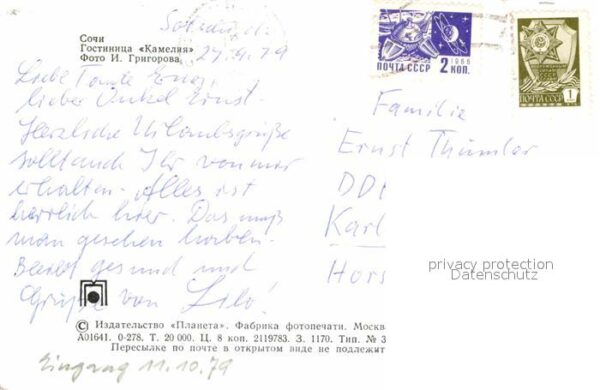 Сочи
Гостиница «Камелия»
Фото И. Григорова
27.9.79
ПОЧТА СССР 2 КОП.
1966
ПОЧТА СССР 1
Liebe Tante Erna,
lieber Onkel Ernst.
Herzliche Urlaubsgrüße
sollt auch Ihr von mir
erhalten. Alles ist
herrlich hier. Das muß
man gesehen haben.
Bleibt gesund und
Grüße von Lilo!
Familie
Ernst Thümler
DD
Karl
Hors
privacy protection
Datenschutz
© Издательство «Планета». Фабрика фотопечати. Москв
А01641. 0-278. Т. 20 000. Ц. 8 коп. 2119783. З. 1170. Тип. № 3
Пересылке по почте в открытом виде не подлежит
Eingang 11.10.79